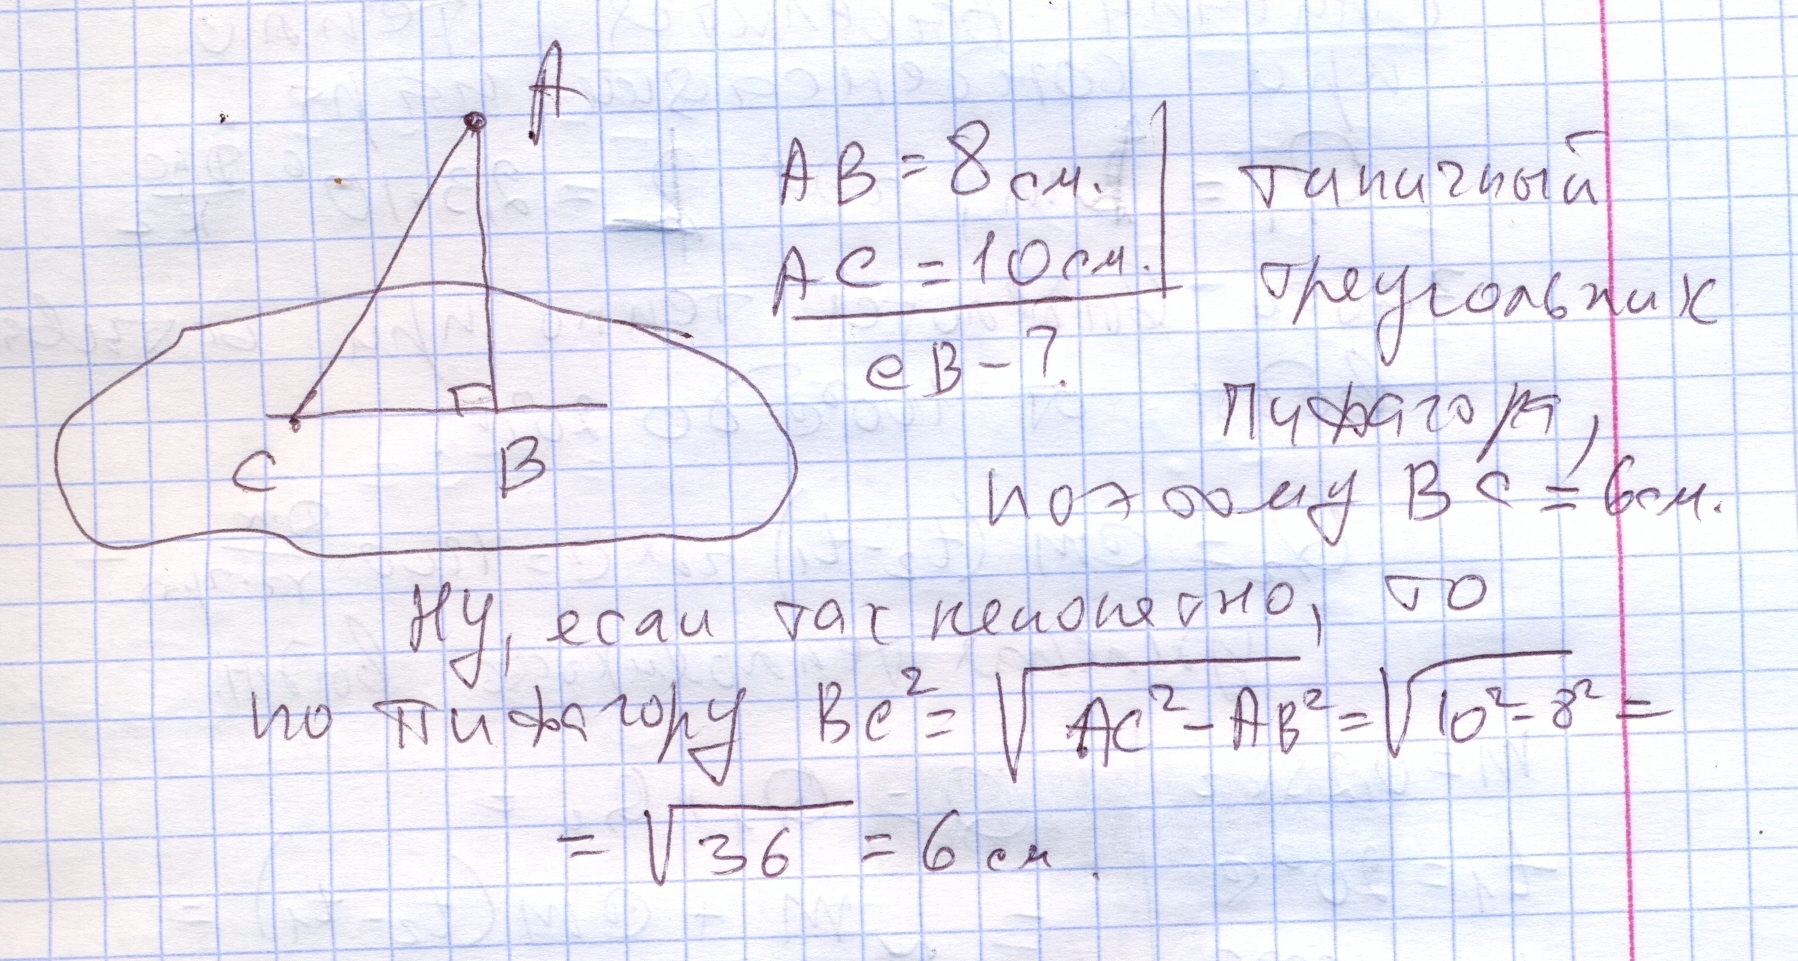 A
AB = 8 см.
AC = 10 см.
CB - ?
C
B
типичный
треугольник
Пифагора,
поэтому BC = 6 см.
Ну, если так непонятно, то
по Пифагору BC² = √AC² - AB² = √10² - 8² =
= √36 = 6 см.